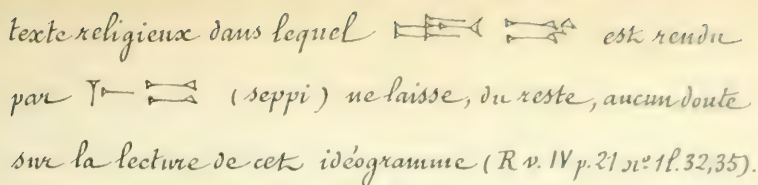 texte religieux dans lequel est rendu
par (seppi) ne laisse, du reste, aucun doute
sur la lecture de cet idéogramme (R v. IV p. 21 nº 1 l. 32, 35).